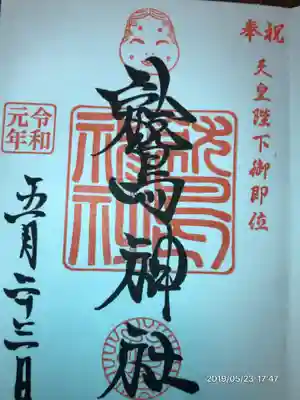 奉祝
天皇陛下御即位
鷲神社
鷲神社
令和
元年
五月二十三日
2019/05/23 17:47